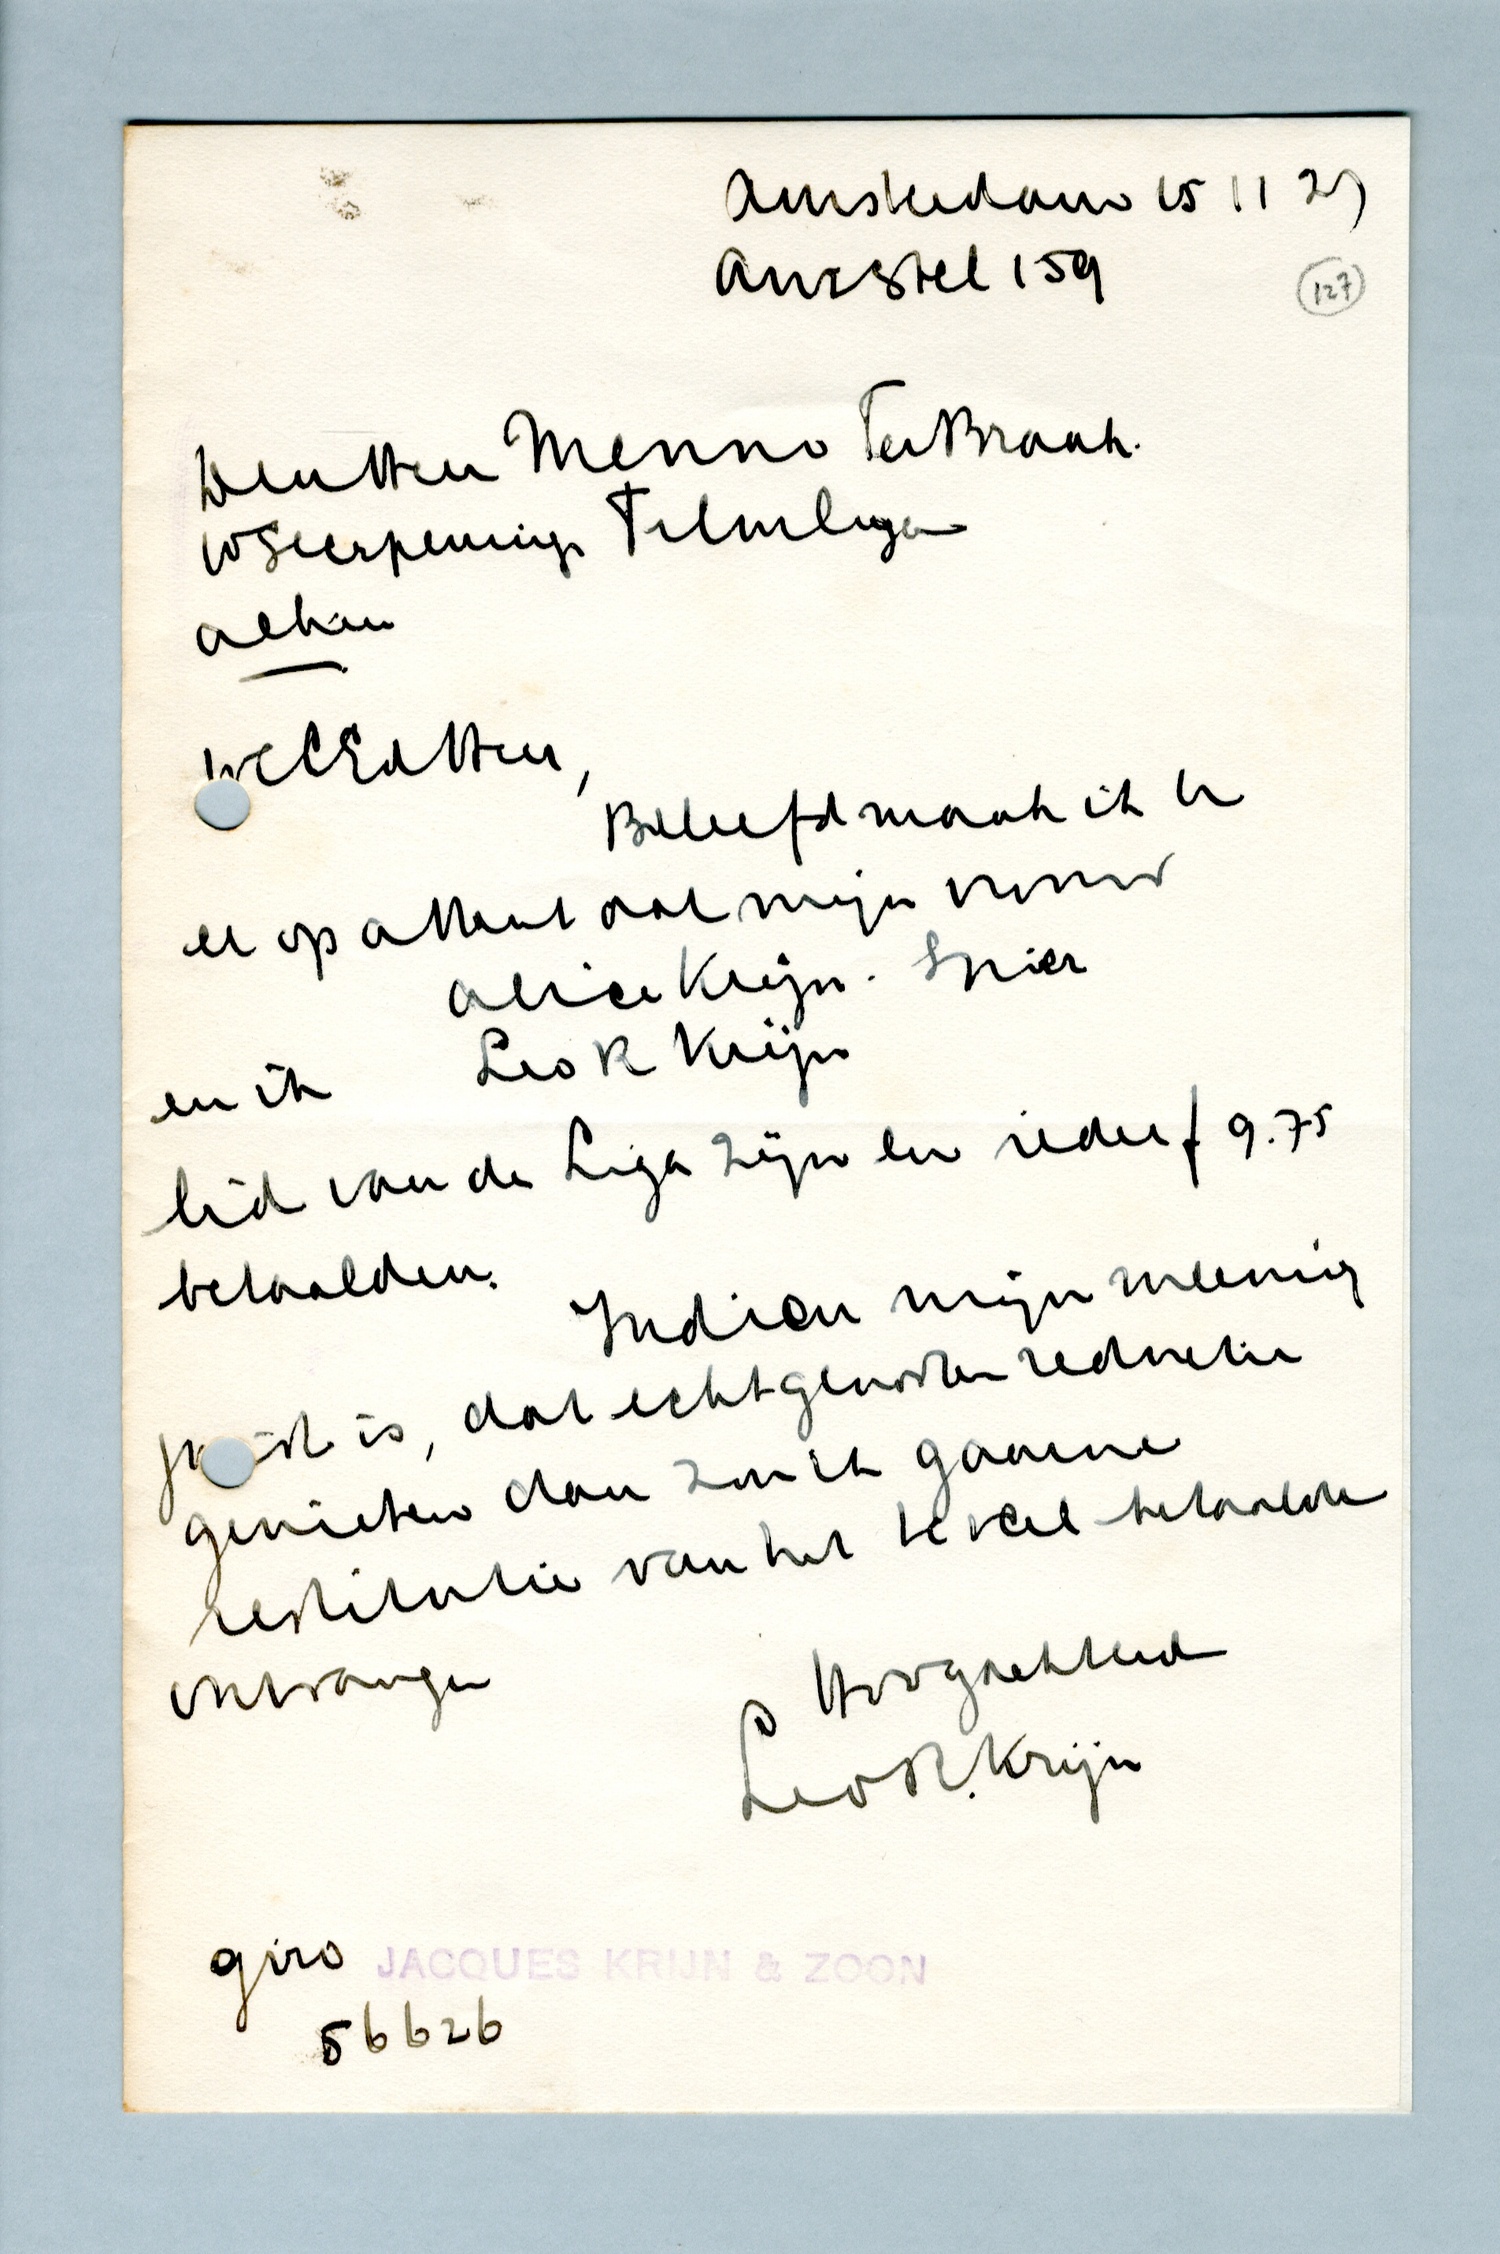 Amsterdam 15 11 27
Amstel 159
127
Den Heer Menno Ter Braak.
Penningm Filmliga
alhier
WelEd Heer,
Beleefd maak ik U
er op attent dat mijn vrouw
Alice Krijn. Spier
Leo R Krijn
en ik
lid van de Liga zijn en ieder f 9.75
betaalden.
Indien mijn meening
juist is, dat echtgenooten reductie
genieten dan zou ik gaarne
restitutie van het te veel betaalde
ontvangen
Hoogachtend
Leo R. Krijn
giro JACQUES KRIJN & ZOON
56626